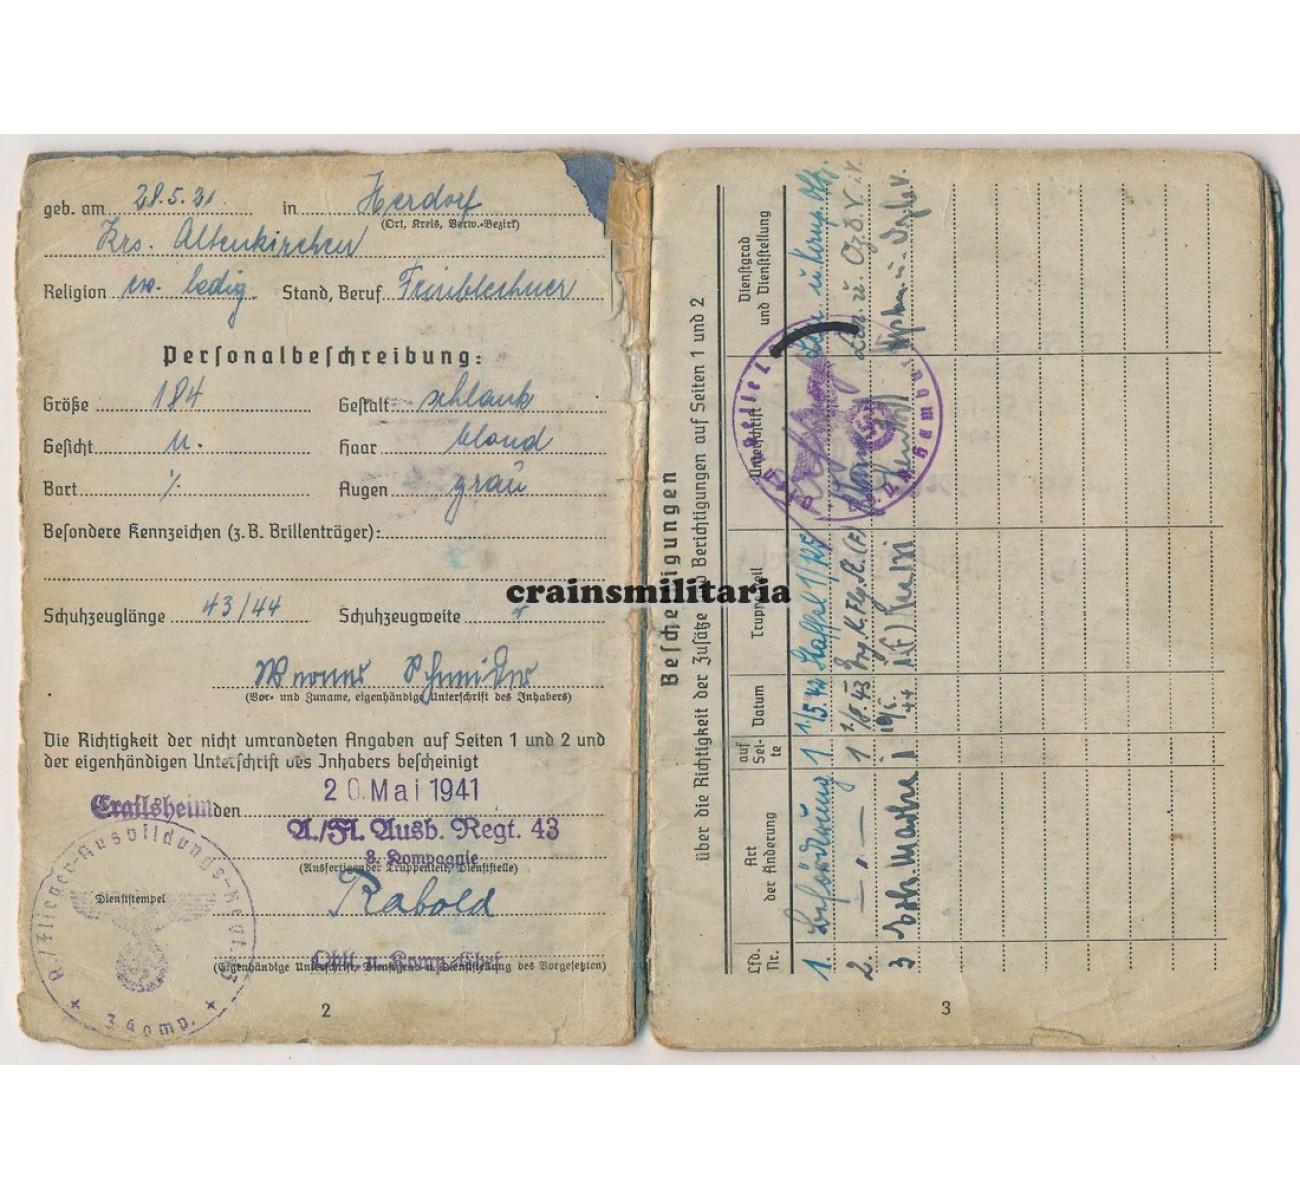 geb. am 28.5.21 in Herdorf
(Ort, Kreis, Verw.-Bezirk)
Krs. Altenkirchen
Religion ev. ledig Stand, Beruf Feinblechner
Personalbeschreibung:
Größe 184 Gestalt schlank
Gesicht Haar blond
Bart ⁒ Augen grau
Besondere Kennzeichen (z. B. Brillenträger):
Schuhzeuglänge 43/44 Schuhzeugweite
Werner Schneider
(Vor- und Zuname, eigenhändige Unterschrift des Inhabers)
Die Richtigkeit der nicht umrandeten Angaben auf Seiten 1 und 2 und
der eigenhändigen Unterschrift des Inhabers bescheinigt
Crailsheim den 20. Mai 1941
A./Fl. Ausb. Regt. 43
Kompagnie
(Ausfertigender Truppenteil, Dienststelle)
Rabold
Dienststempel
Oblt. u. Komp.-Chef
(Eigenhändige Unterschrift, Dienstgrad u. Dienststellung des Vorgesetzten)
A./Flieger-Ausbildungs-Regt. 43
Komp.
2
crainsmilitaria
Bescheinigungen
über die Richtigkeit der Zusätze und Berichtigungen auf Seiten 1 und 2
Lfd. Nr. Art der Änderung auf Seite Datum Truppenteil Unterschrift Dienstgrad und Dienststellung
1. Beförderung 1 1/5.42
2. — „ — 1 1/8.43
3 Erk. Marke 1
3